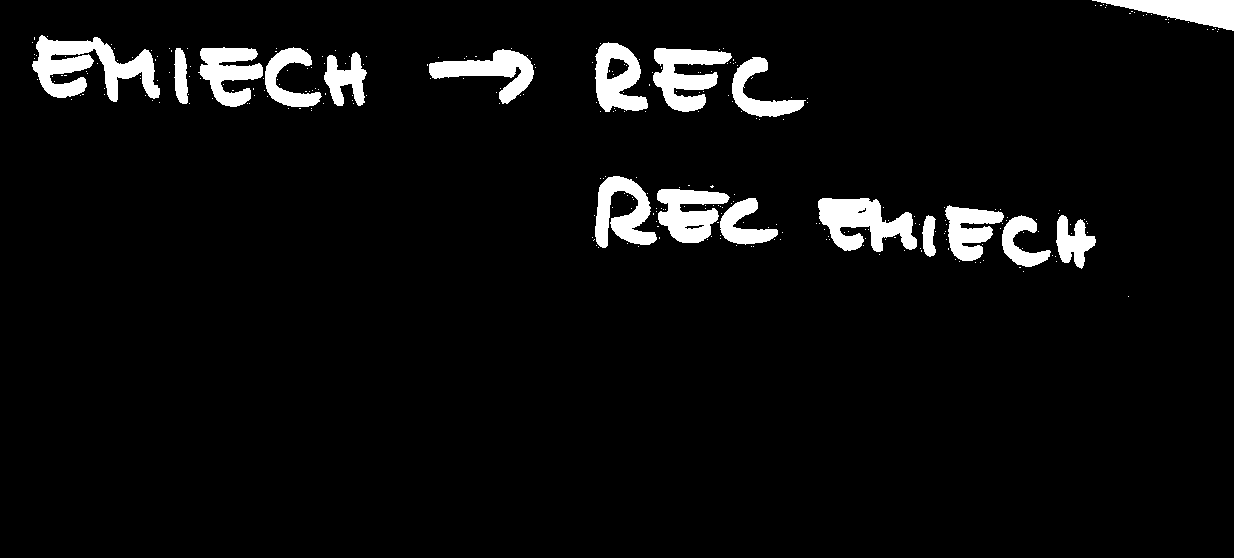 EMIECH → REC
REC EMIECH